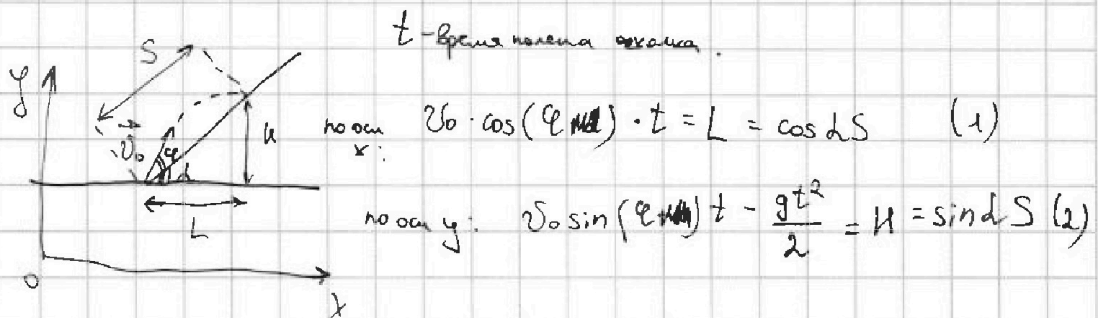 t - время полета осколка.
y
S
v₀
φ
α
H
L
0
x
по оси x: v₀ · cos(φ) · t = L = cosα S (1)
по оси y: v₀ sin(φ) t - gt²/2 = H = sinα S (2)